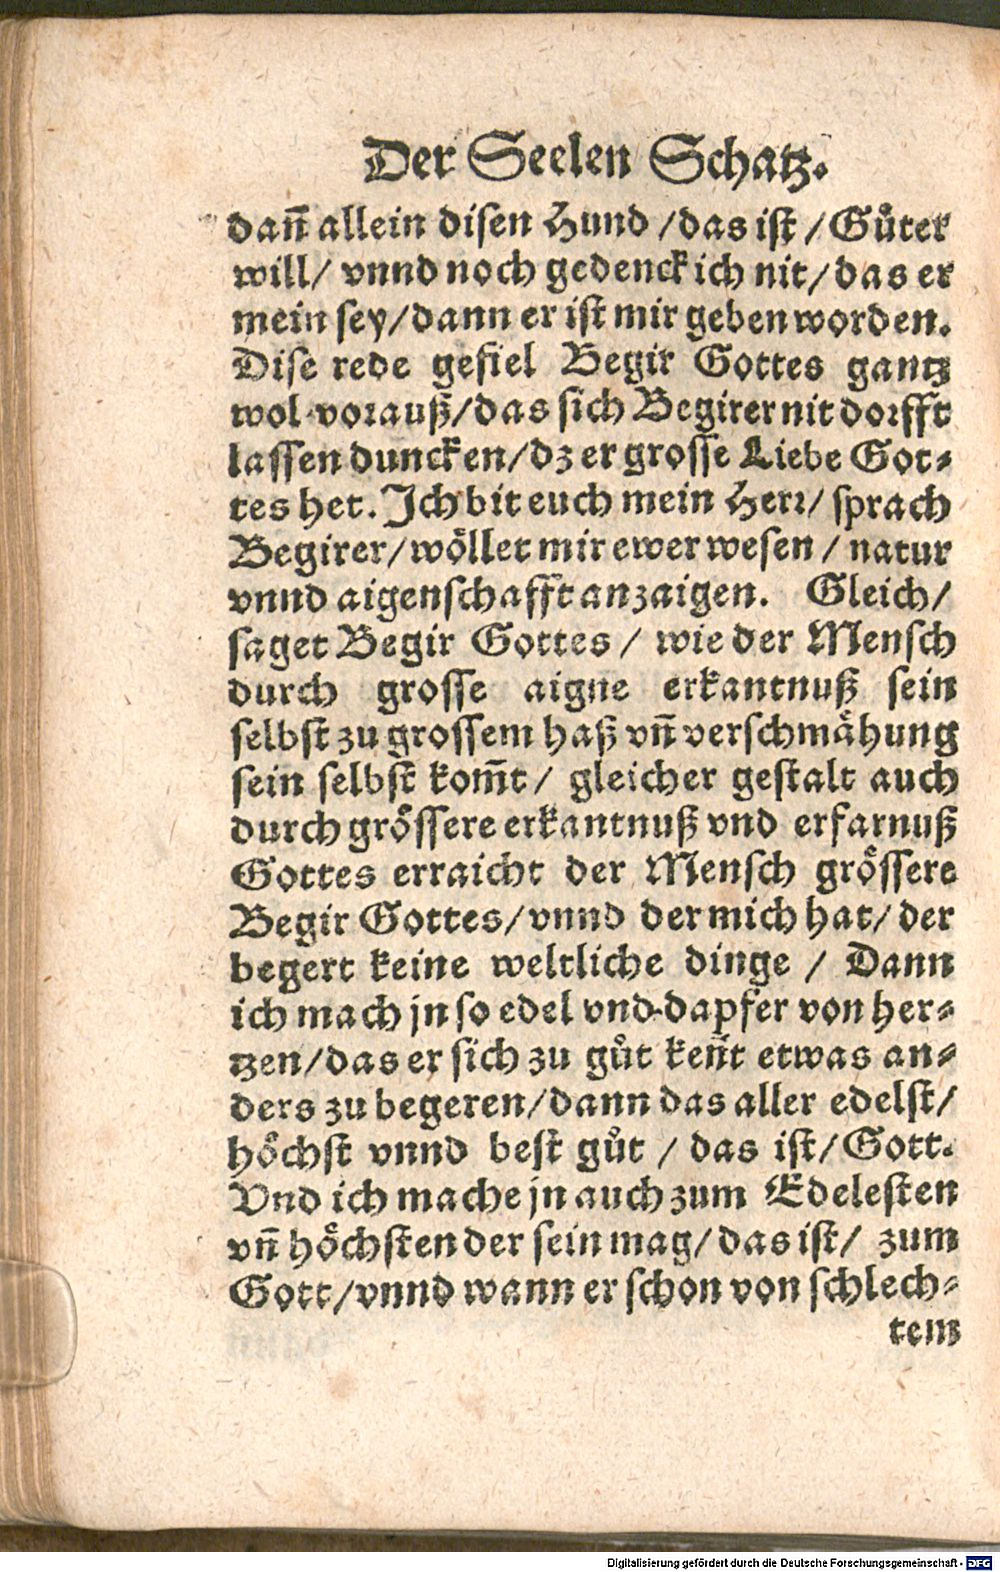 Der Seelen Schatz.
dañ allein disen Hund /das ist / Gůter
will/ vnnd noch gedenck ich nit/ das er
mein sey/dann er ist mir geben worden.
Dise rede gefiel Begir Gottes gantz
wol vorauß/das sich Begirer nit dorfft
lassen duncken/dz er grosse Liebe Got-
tes het. Ich bit euch mein Herr/ sprach
Begirer/wöllet mir ewer wesen / natur
vnnd aigenschafft anzaigen. Gleich/
saget Begir Gottes / wie der Mensch
durch grosse aigne erkantnuß sein
selbst zu grossem haß vñ verschmähung
sein selbst kom̄t/ gleicher gestalt auch
durch grössere erkantnuß vnd erfarnuß
Gottes erraicht der Mensch grössere
Begir Gottes/vnnd der mich hat/ der
begert keine weltliche dinge / Dann
ich mach jn so edel vnd dapfer von her-
tzen/das er sich zu gůt keñt etwas an-
ders zu begeren/dann das aller edelst/
höchst vnnd best gůt / das ist/ Gott.
Vnd ich mache jn auch zum Edelesten
vñ höchsten der sein mag/ das ist/ zum
Gott/vnnd wann er schon von schlech-
tem
Digitalisierung gefördert durch die Deutsche Forschungsgemeinschaft - DFG